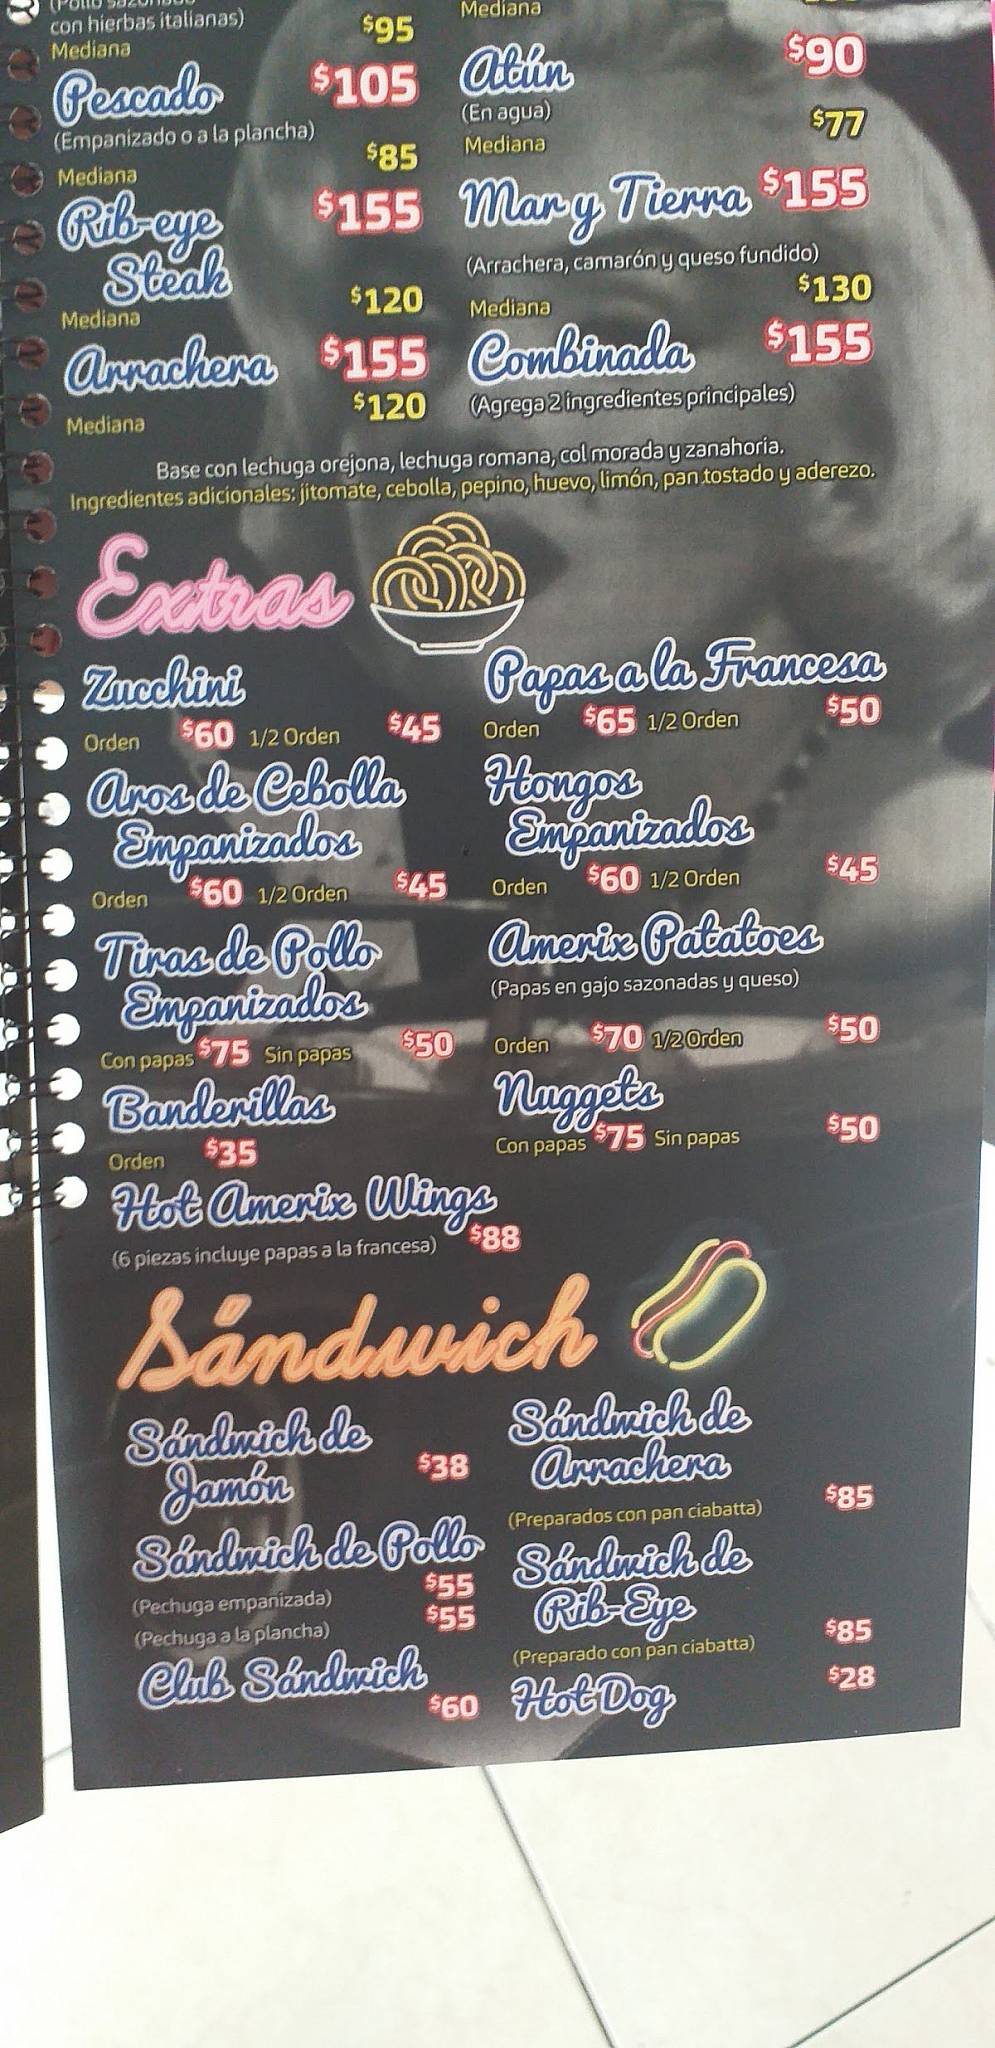 (Pollo sazonado
con hierbas italianas)
Mediana $95
Pescado $105
(Empanizado o a la plancha)
Mediana $85
Rib-eye $155
Steak
Mediana $120
Arrachera $155
Mediana $120
Mediana
Atún $90
(En agua)
Mediana $77
Mar y Tierra $155
(Arrachera, camarón y queso fundido)
Mediana $130
Combinada $155
(Agrega 2 ingredientes principales)
Base con lechuga orejona, lechuga romana, col morada y zanahoria.
Ingredientes adicionales: jitomate, cebolla, pepino, huevo, limón, pan tostado y aderezo.
Extras
Zucchini
Orden $60 1/2 Orden $45
Aros de Cebolla
Empanizados
Orden $60 1/2 Orden $45
Tiras de Pollo
Empanizados
Con papas $75 Sin papas $50
Banderillas
Orden $35
Hot Amerix Wings
(6 piezas incluye papas a la francesa) $88
Papas a la Francesa
Orden $65 1/2 Orden $50
Hongos
Empanizados
Orden $60 1/2 Orden $45
Amerix Patatoes
(Papas en gajo sazonadas y queso)
Orden $70 1/2 Orden $50
Nuggets
Con papas $75 Sin papas $50
Sándwich
Sándwich de
Jamón $38
Sándwich de Pollo
(Pechuga empanizada) $55
(Pechuga a la plancha) $55
Club Sándwich
$60
Sándwich de
Arrachera
(Preparados con pan ciabatta) $85
Sándwich de
Rib-Eye
(Preparado con pan ciabatta) $85
Hot Dog $28